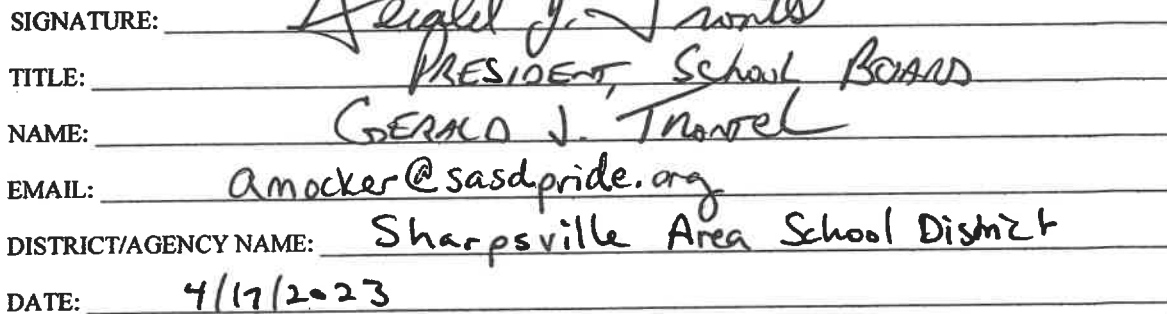 SIGNATURE: Gerald J. Trontel
TITLE: PRESIDENT, SCHOOL BOARD
NAME: GERALD J. TRONTEL
EMAIL: amocker@sasdpride.org
DISTRICT/AGENCY NAME: Sharpsville Area School District
DATE: 4/17/2023